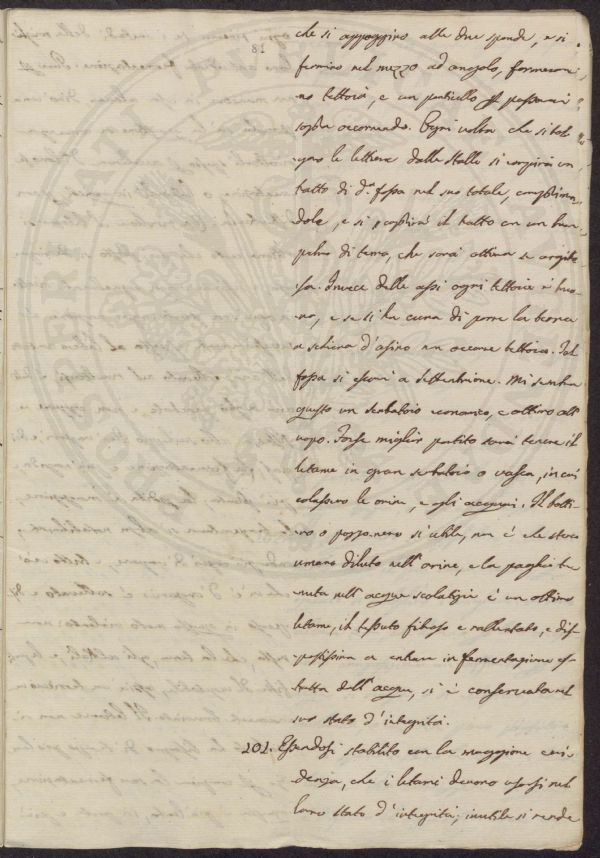 81
che si appoggino alle due sponde, e si
fermino nel mezzo ad angolo, formeran
no tettoia, e un ponticello per passarvi
sopra occorrendo. Ogni volta che si tol
gono le lettiere dalle stalle si empirà un
tratto di d.ª fossa nel suo totale, comprimen
dole, e si coprirà il tratto con un buon
palmo di terra, che sarà ottima se argillo
sa. Invece delle assi ogni tettoia è buo
na, e se si ha cura di porre la terra
a schiena d'asino non occorre tettoia. Tal
fossa si scavi a settentrione. Mi sembra
questo un serbatoio economico, e ottimo all'
uopo. Forse miglior partito sarà tenere il
letame in gran serbatoio o vasca, in cui
colassero le orine, e gli acquai. Il botti
no o pozzo nero sì utile, non è che sterco
umano diluto nell'orine, e la paglia te
nuta nell'acque scolatizie è un ottimo
letame, il tessuto fibroso è rallentato, e dis
postissimo a entrare in fermentazione es
tratta dall'acqua, si è conservata nel
suo stato d'integrità.
202. Essendosi stabilito con la maggiore evi
denza, che i letami devono usarsi nel
loro stato d'integrità; inutile si rende